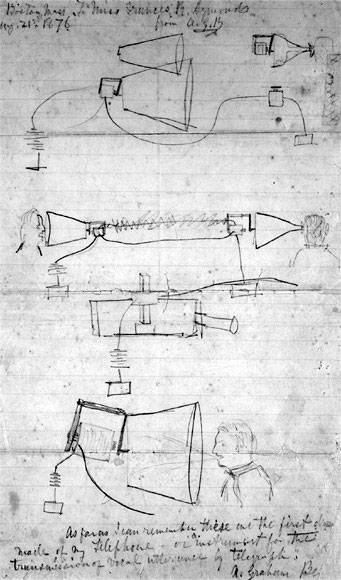 Boston Mass. To Miss Frances M. Symonds
Aug. 21st 1876 from A.G.B
As far as I can remember these are the first drawings
made of my telephone or instrument for the
transmission of vocal utterance by telegraph.
A. Graham Be